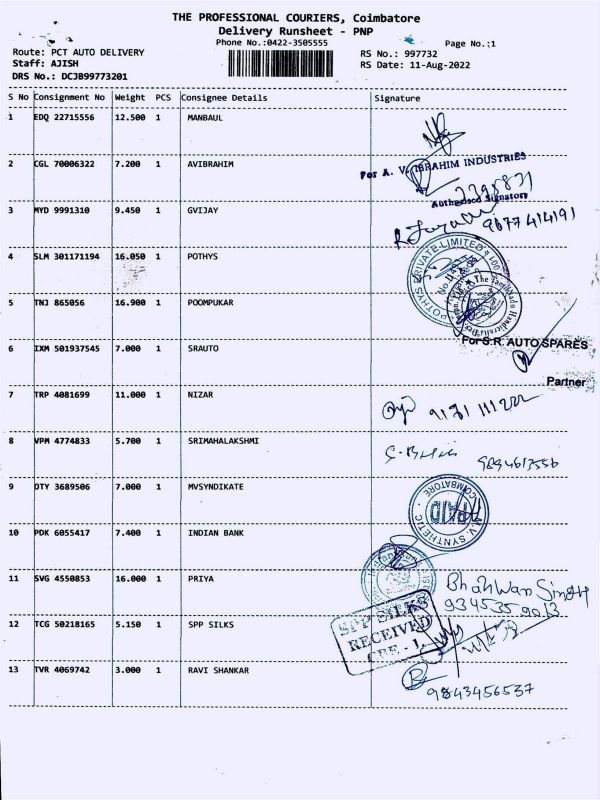 THE PROFESSIONAL COURIERS, Coimbatore
Delivery Runsheet - PNP
Phone No.:0422-3505555
Page No.:1
Route: PCT AUTO DELIVERY
RS No.: 997732
Staff: AJISH
RS Date: 11-Aug-2022
DRS No.: DCJB99773201
S No Consignment No Weight PCS Consignee Details Signature
1 EDQ 22715556 12.500 1 MANBAUL
2 CGL 70006322 7.200 1 AVIBRAHIM
For A. V. IBRAHIM INDUSTRIES
Authorised Signatory
3 MYD 9991310 9.450 1 GVIJAY
9677414191
4 SLM 301171194 16.050 1 POTHYS
POTHYS PRIVATE LIMITED
5 TNJ 865056 16.900 1 POOMPUKAR
6 IXM 501937545 7.000 1 SRAUTO
For S.R. AUTO SPARES
Partner
7 TRP 4081699 11.000 1 NIZAR
8 VPM 4774833 5.700 1 SRIMAHALAKSHMI
9 OTY 3689506 7.000 1 MVSYNDIKATE
COIMBATORE
PAID
M.V. SYNTHETIC
10 PDK 6055417 7.400 1 INDIAN BANK
11 SVG 4550853 16.000 1 PRIYA
Bhahwan Singh
12 TCG 50218165 5.150 1 SPP SILKS
SPP SILKS
RECEIVED
CBE - 1
13 TVR 4069742 3.000 1 RAVI SHANKAR
9843456537